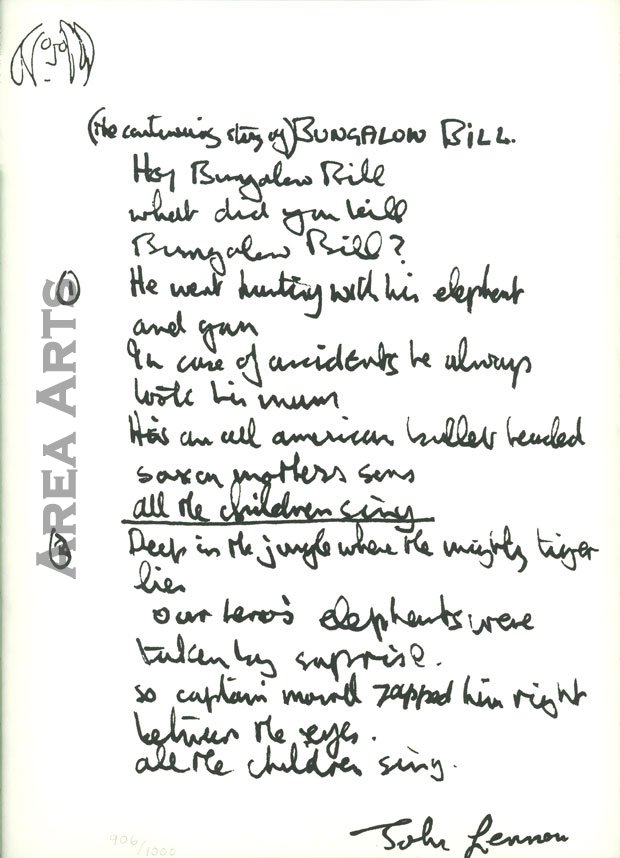 (the continuing story of) BUNGALOW BILL.
Hey Bungalow Bill
what did you kill
Bungalow Bill?
1 He went hunting with his elephant
and gun
In case of accidents he always
took his mum
He's an all american bullet headed
saxon mothers sons
all the children sing
2 Deep in the jungle where the mighty tiger
lies
our hero's elephants were
taken by suprise.
so captain marvell zapped him right
between the eyes.
all the children sing.
John Lennon
906/1000
AREA ARTS